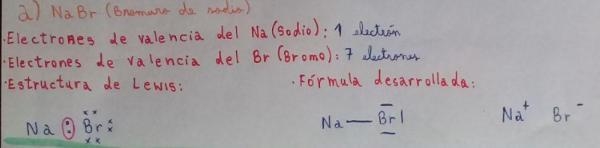 a) NaBr (Bromuro de sodio)
·Electrones de valencia del Na (Sodio): 1 electrón
·Electrones de valencia del Br (Bromo): 7 electrones
·Estructura de Lewis: ·Fórmula desarrollada:
Na : Br Na — Br| Na⁺ Br⁻